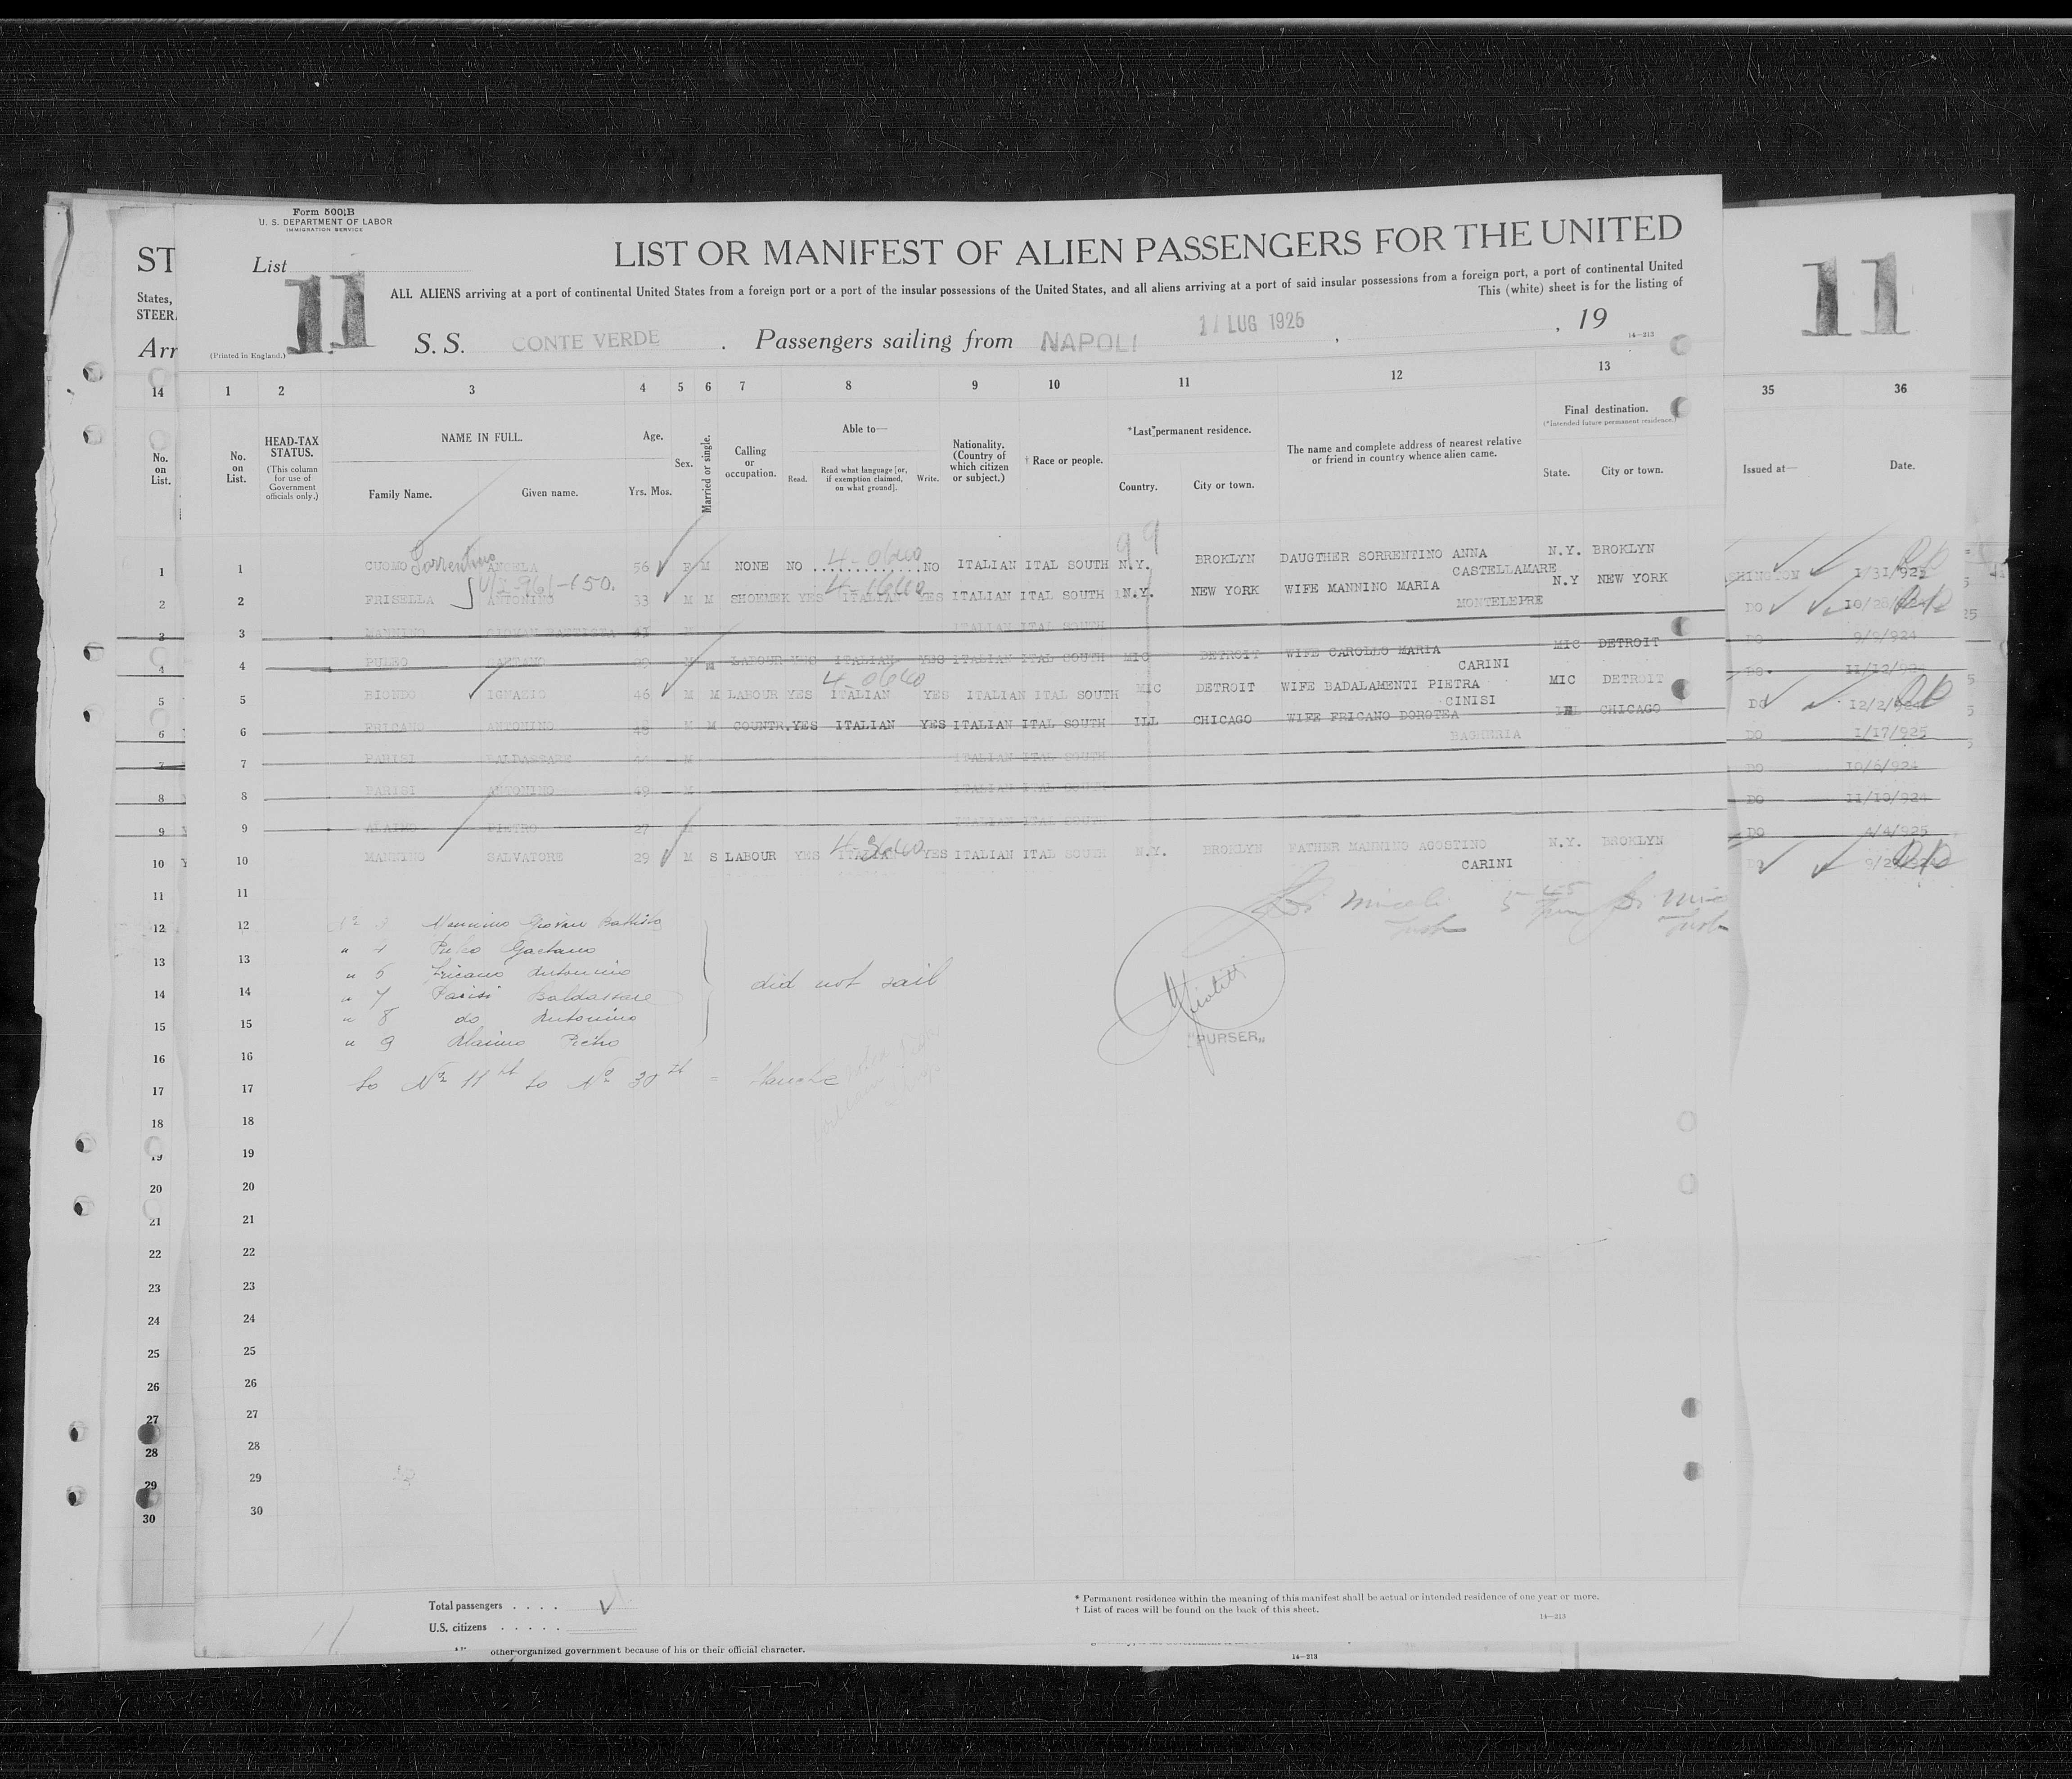 Form 500 B
U. S. DEPARTMENT OF LABOR
IMMIGRATION SERVICE
ST
List
11
LIST OR MANIFEST OF ALIEN PASSENGERS FOR THE UNITED
11
States,
STEER
ALL ALIENS arriving at a port of continental United States from a foreign port or a port of the insular possessions of the United States, and all aliens arriving at a port of said insular possessions from a foreign port, a port of continental United
This (white) sheet is for the listing of
Arr
(Printed in England.)
S. S. CONTE VERDE . Passengers sailing from NAPOLI , LUG 1925 , 19
14—213
14 1 2 3 4 5 6 7 8 9 10 11 12 13 35 36
No. on List.
No. on List.
HEAD-TAX STATUS.
(This column for use of Government officials only.)
NAME IN FULL.
Family Name. Given name.
Age.
Yrs. Mos.
Sex.
Married or single.
Calling or occupation.
Able to—
Read. Read what language [or, if exemption claimed, on what ground]. Write.
Nationality. (Country of which citizen or subject.)
† Race or people.
*Last permanent residence.
Country. City or town.
The name and complete address of nearest relative or friend in country whence alien came.
Final destination.
(*Intended future permanent residence.)
State. City or town.
Issued at— Date.
99
Sorrentino
1 1 CUOMO ANGELA 56 F M NONE NO NO ITALIAN ITAL SOUTH N.Y. BROKLYN DAUGTHER SORRENTINO ANNA N.Y. BROKLYN 1/31/925
CASTELLAMARE
2 2 FRISELLA ANTONINO 33 M M SHOEMEK YES ITALIAN YES ITALIAN ITAL SOUTH N.Y. NEW YORK WIFE MANNINO MARIA N.Y NEW YORK DO
MONTELEPRE
3 3 MANNINO GIOVAN BATTISTA 41 M ITALIAN ITAL SOUTH DO 9/9/924
4 4 PULEO GAETANO M M LABOUR YES ITALIAN YES ITALIAN ITAL SOUTH MIC DETROIT WIFE CAROLLO MARIA MIC DETROIT DO 11/12/924
CARINI
5 5 BIONDO IGNAZIO 46 M M LABOUR YES ITALIAN YES ITALIAN ITAL SOUTH MIC DETROIT WIFE BADALAMENTI PIETRA MIC DETROIT DO
CINISI
6 6 FRICANO ANTONINO 48 M M COUNTR. YES ITALIAN YES ITALIAN ITAL SOUTH ILL CHICAGO WIFE FRICANO DOROTEA ILL CHICAGO DO 1/17/925
BAGHERIA
7 7 PARISI BALDASSARE M ITALIAN ITAL SOUTH DO 10/6/924
8 8 PARISI ANTONINO 49 M ITALIAN ITAL SOUTH DO 11/10/924
9 9 ALAIMO PIETRO 27 ITALIAN ITAL SOUTH DO 4/4/925
10 10 MANNINO SALVATORE 29 M S LABOUR YES ITALIAN YES ITALIAN ITAL SOUTH N.Y. BROKLYN FATHER MANNINO AGOSTINO N.Y. BROKLYN DO
CARINI
11 11
12 12 Mannino Giovan Battista
13 13 " 4 Puleo Gaetano
" 6 Fricano Antonino
14 14 " 7 Parisi Baldassare
did not sail
15 15 " 8 do Antonino
" 9 Alaimo Pietro
"PURSER"
16 16
17 17 to Nº 30
18 18
19 19
20 20
21 21
22 22
23 23
24 24
25 25
26 26
27 27
28 28
29 29
30 30
Total passengers . . . .
U.S. citizens . . . . .
* Permanent residence within the meaning of this manifest shall be actual or intended residence of one year or more.
† List of races will be found on the back of this sheet.
14—213
other organized government because of his or their official character.
14—213